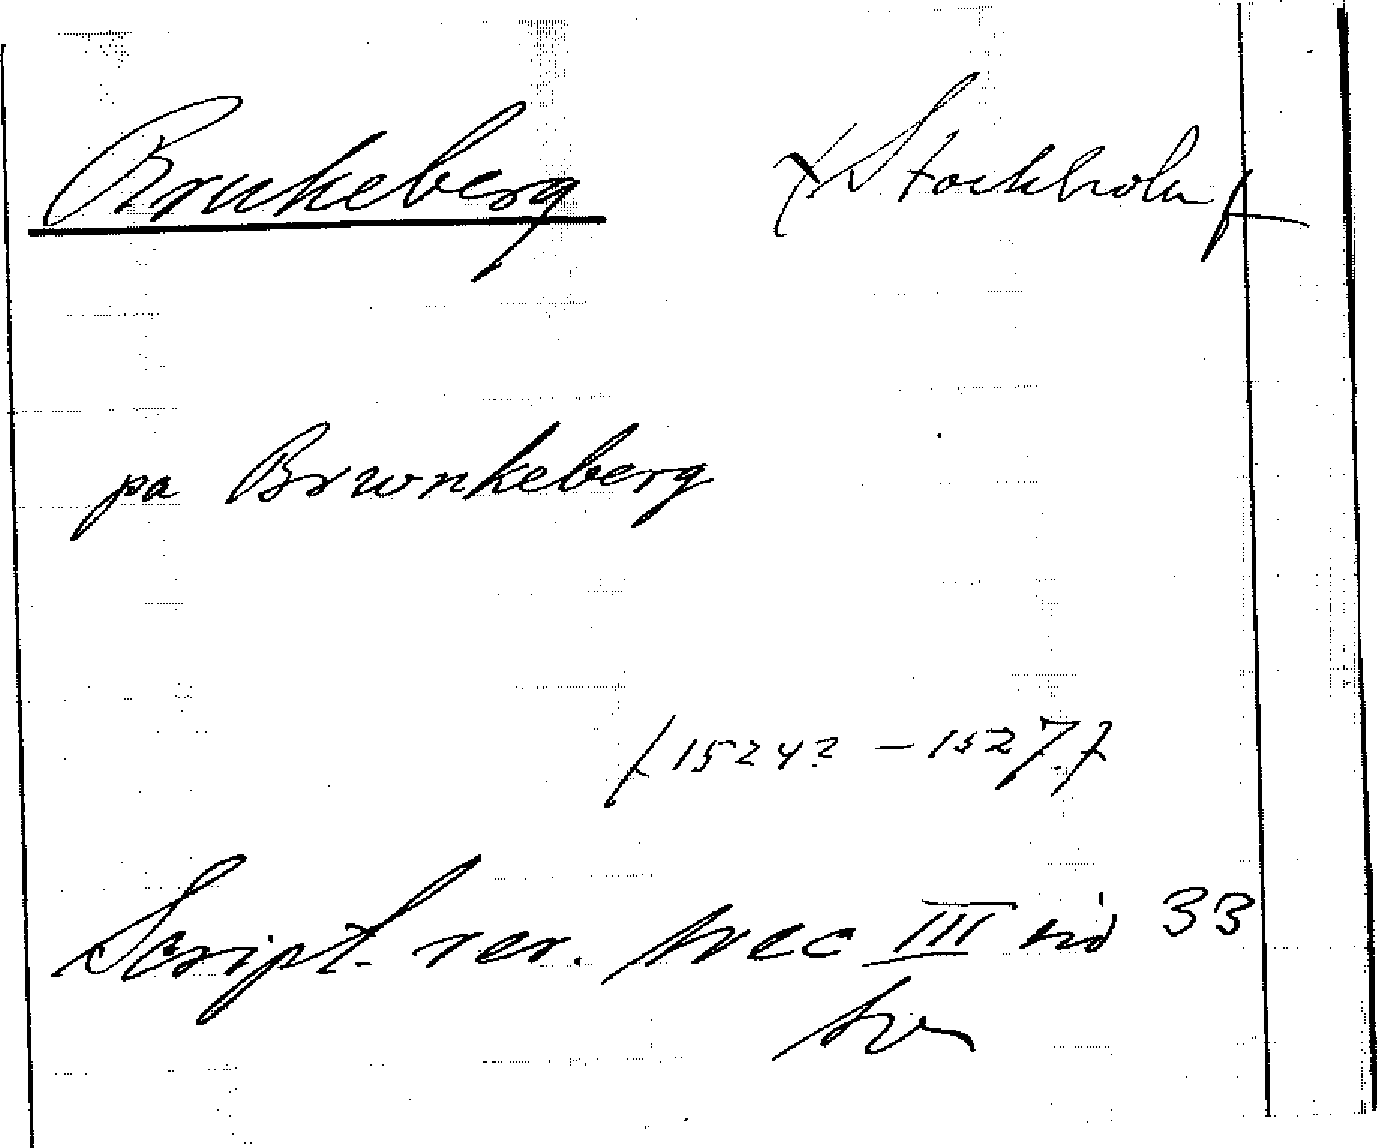 Brukeberg (Stockholm)
pa Brwnkeberg
(1524? – 1527)
Script. rer. svec III sid 33
sv